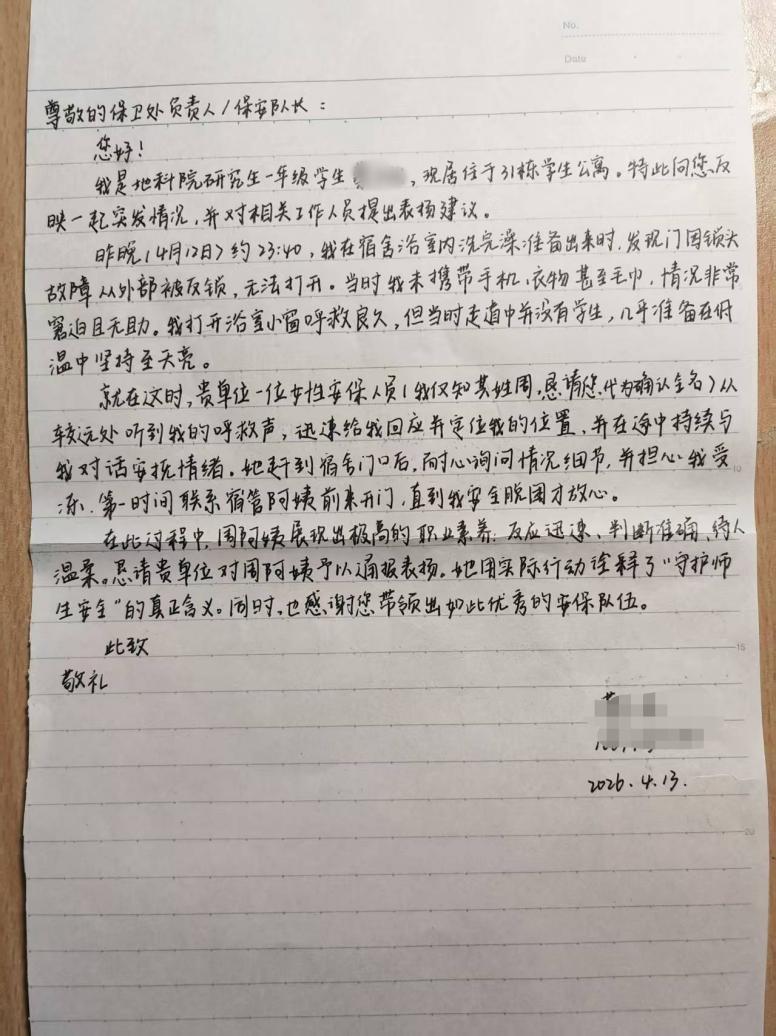 No.
Date
尊敬的保卫处负责人/保安队长：
您好！
我是地科院研究生一年级学生，现居住于31栋学生公寓。特此向您反
映一起突发情况，并对相关工作人员提出表扬建议。
昨晚(4月12日)约23:40，我在宿舍浴室内洗完澡准备出来时，发现门因锁头
故障从外部被反锁，无法打开。当时我未携带手机、衣物甚至毛巾，情况非常
窘迫且无助。我打开浴室小窗呼救良久，但当时走道中并没有学生，几乎准备在低
温中坚持至天亮。
就在这时，贵单位一位女性安保人员(我仅知其姓周，恳请您代为确认全名)从
较远处听到我的呼救声，迅速给我回应并定位我的位置，并在途中持续与
我对话安抚情绪。她赶到宿舍门口后，耐心询问情况细节，并担心我受
冻，第一时间联系宿管阿姨前来开门，直到我安全脱困才放心。
在此过程中，周阿姨展现出极高的职业素养：反应迅速、判断准确、待人
温柔。恳请贵单位对周阿姨予以通报表扬。她用实际行动诠释了“守护师
生安全”的真正含义。同时，也感谢您带领出如此优秀的安保队伍。
此致
敬礼
2026.4.13.
10
15
20